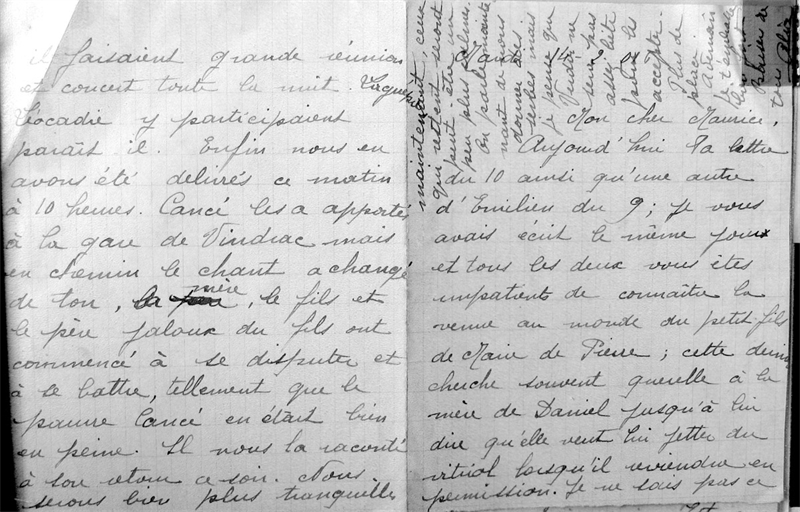 il faisaient grande réunion
et concert toute la nuit.
Léocadie y participaient
paraît il. Enfin nous en
avons été délivrés ce matin
à 10 heures. Cancé les a apportés
à la gare de Vindrac mais
en chemin le chant a changé
de ton, la mère, le fils et
le père jaloux du fils ont
commencé à se disputer et
à se battre, tellement que le
pauvre Cancé en était bien
en peine. Il nous la raconté
à son retour ce soir. Nous
serons bien plus tranquilles
maintenant, ceux
qui restent seront
peut être un
peu plus calmes.
On parle maintenant
nant de nous
donner des
Serbes mais
je pense que
Vindrac ne
sera pas
assez
pour les
accepter.
Plus de
place
A demain
je t'embrasse
Baiser de
Mon cher Maurice,
Aujourd'hui ta lettre
du 10 ainsi qu'une autre
d'Emilien du 9; je vous
avais écrit le même jour
et tous les deux vous êtes
impatients de connaître la
venue au monde du petit fils
de Marie de Pierre; cette dernière
cherche souvent querelle à la
mère de Daniel jusqu'à lui
dire qu'elle veut lui jetter du
vitriol lorsqu'il reviendra en
permission. Je ne sais pas ce